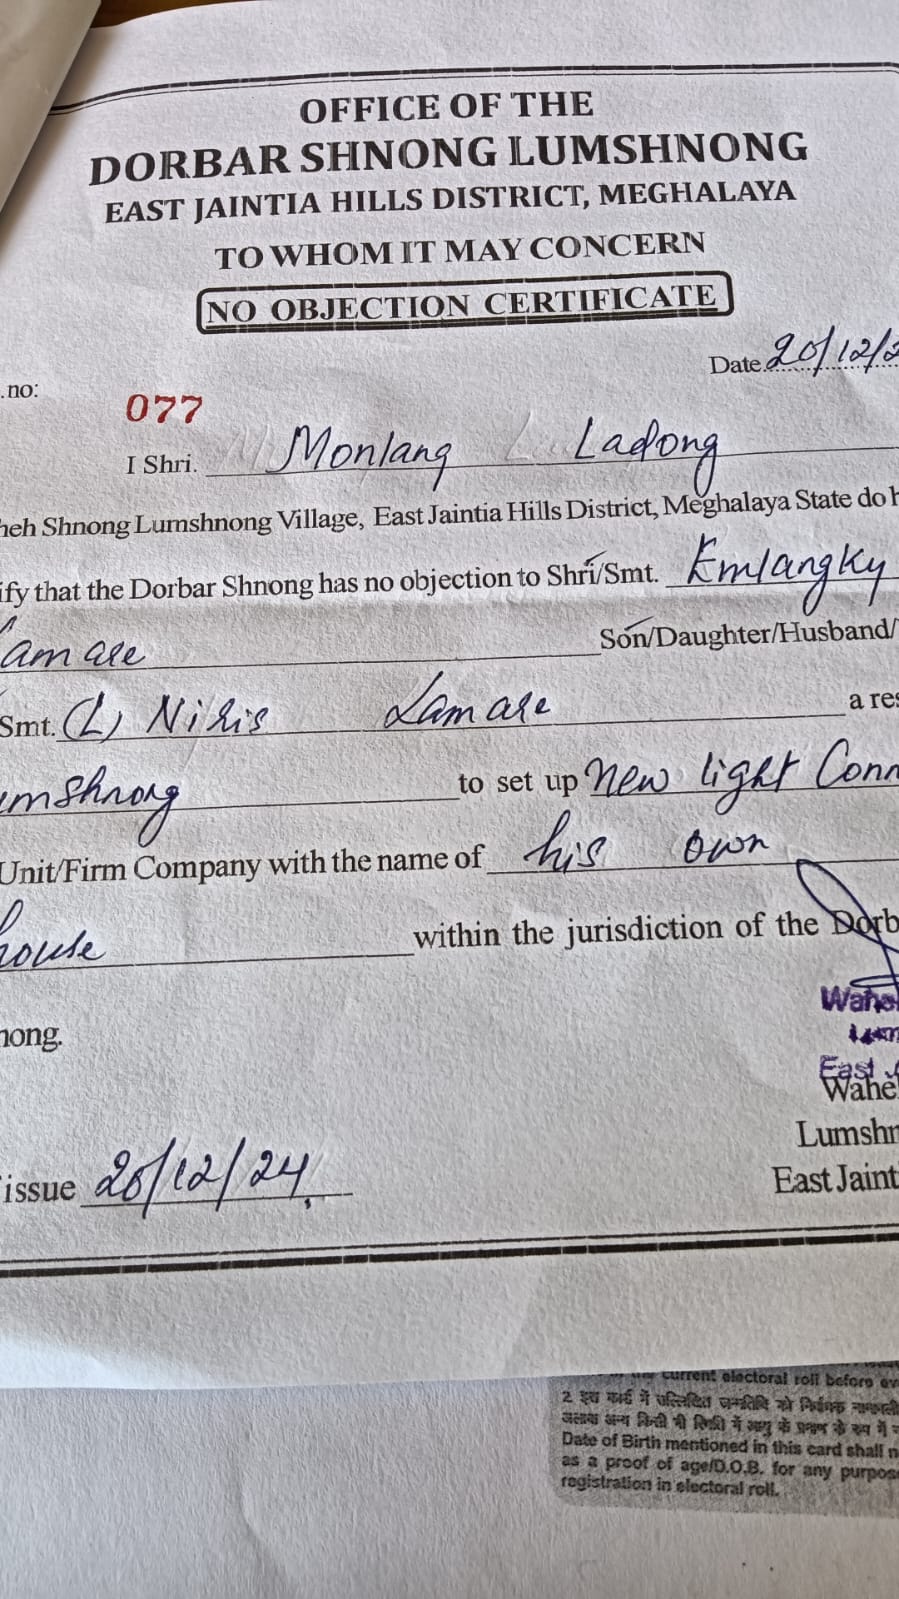 OFFICE OF THE
DORBAR SHNONG LUMSHNONG
EAST JAINTIA HILLS DISTRICT, MEGHALAYA
TO WHOM IT MAY CONCERN
NO OBJECTION CERTIFICATE
Date 20/12/2
.no:
077
I Shri. Monlang Ladong
heh Shnong Lumshnong Village, East Jaintia Hills District, Meghalaya State do h
ify that the Dorbar Shnong has no objection to Shri/Smt. Emlangky
Lamare Son/Daughter/Husband/
Smt. (L) Niris Lamare a res
umshnong to set up New light Conn
Unit/Firm Company with the name of his own
house within the jurisdiction of the Dorb
nong.
Wahe
Lum
East J
Wahe
Lumshn
issue 20/12/24
East Jaint
current electoral roll before ev
2 इस कार्ड में उल्लिखित जन्मतिथि को निर्वाचक नामावली
अलावा अन्य किसी भी में आयु के प्रमाण के रूप में
Date of Birth mentioned in this card shall n
as a proof of age/D.O.B. for any purpos
registration in electoral roll.